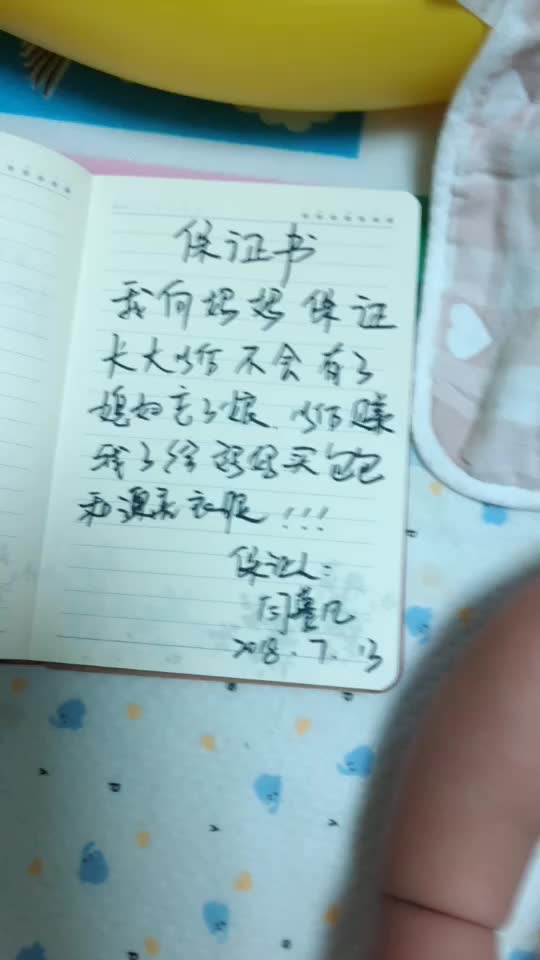 保证书
我向妈妈保证
长大以后不会有了
媳妇忘了娘.以后赚
钱了给妈妈买包包
和漂亮衣服!!!
保证人:
闫瑾凡
2018.7.13